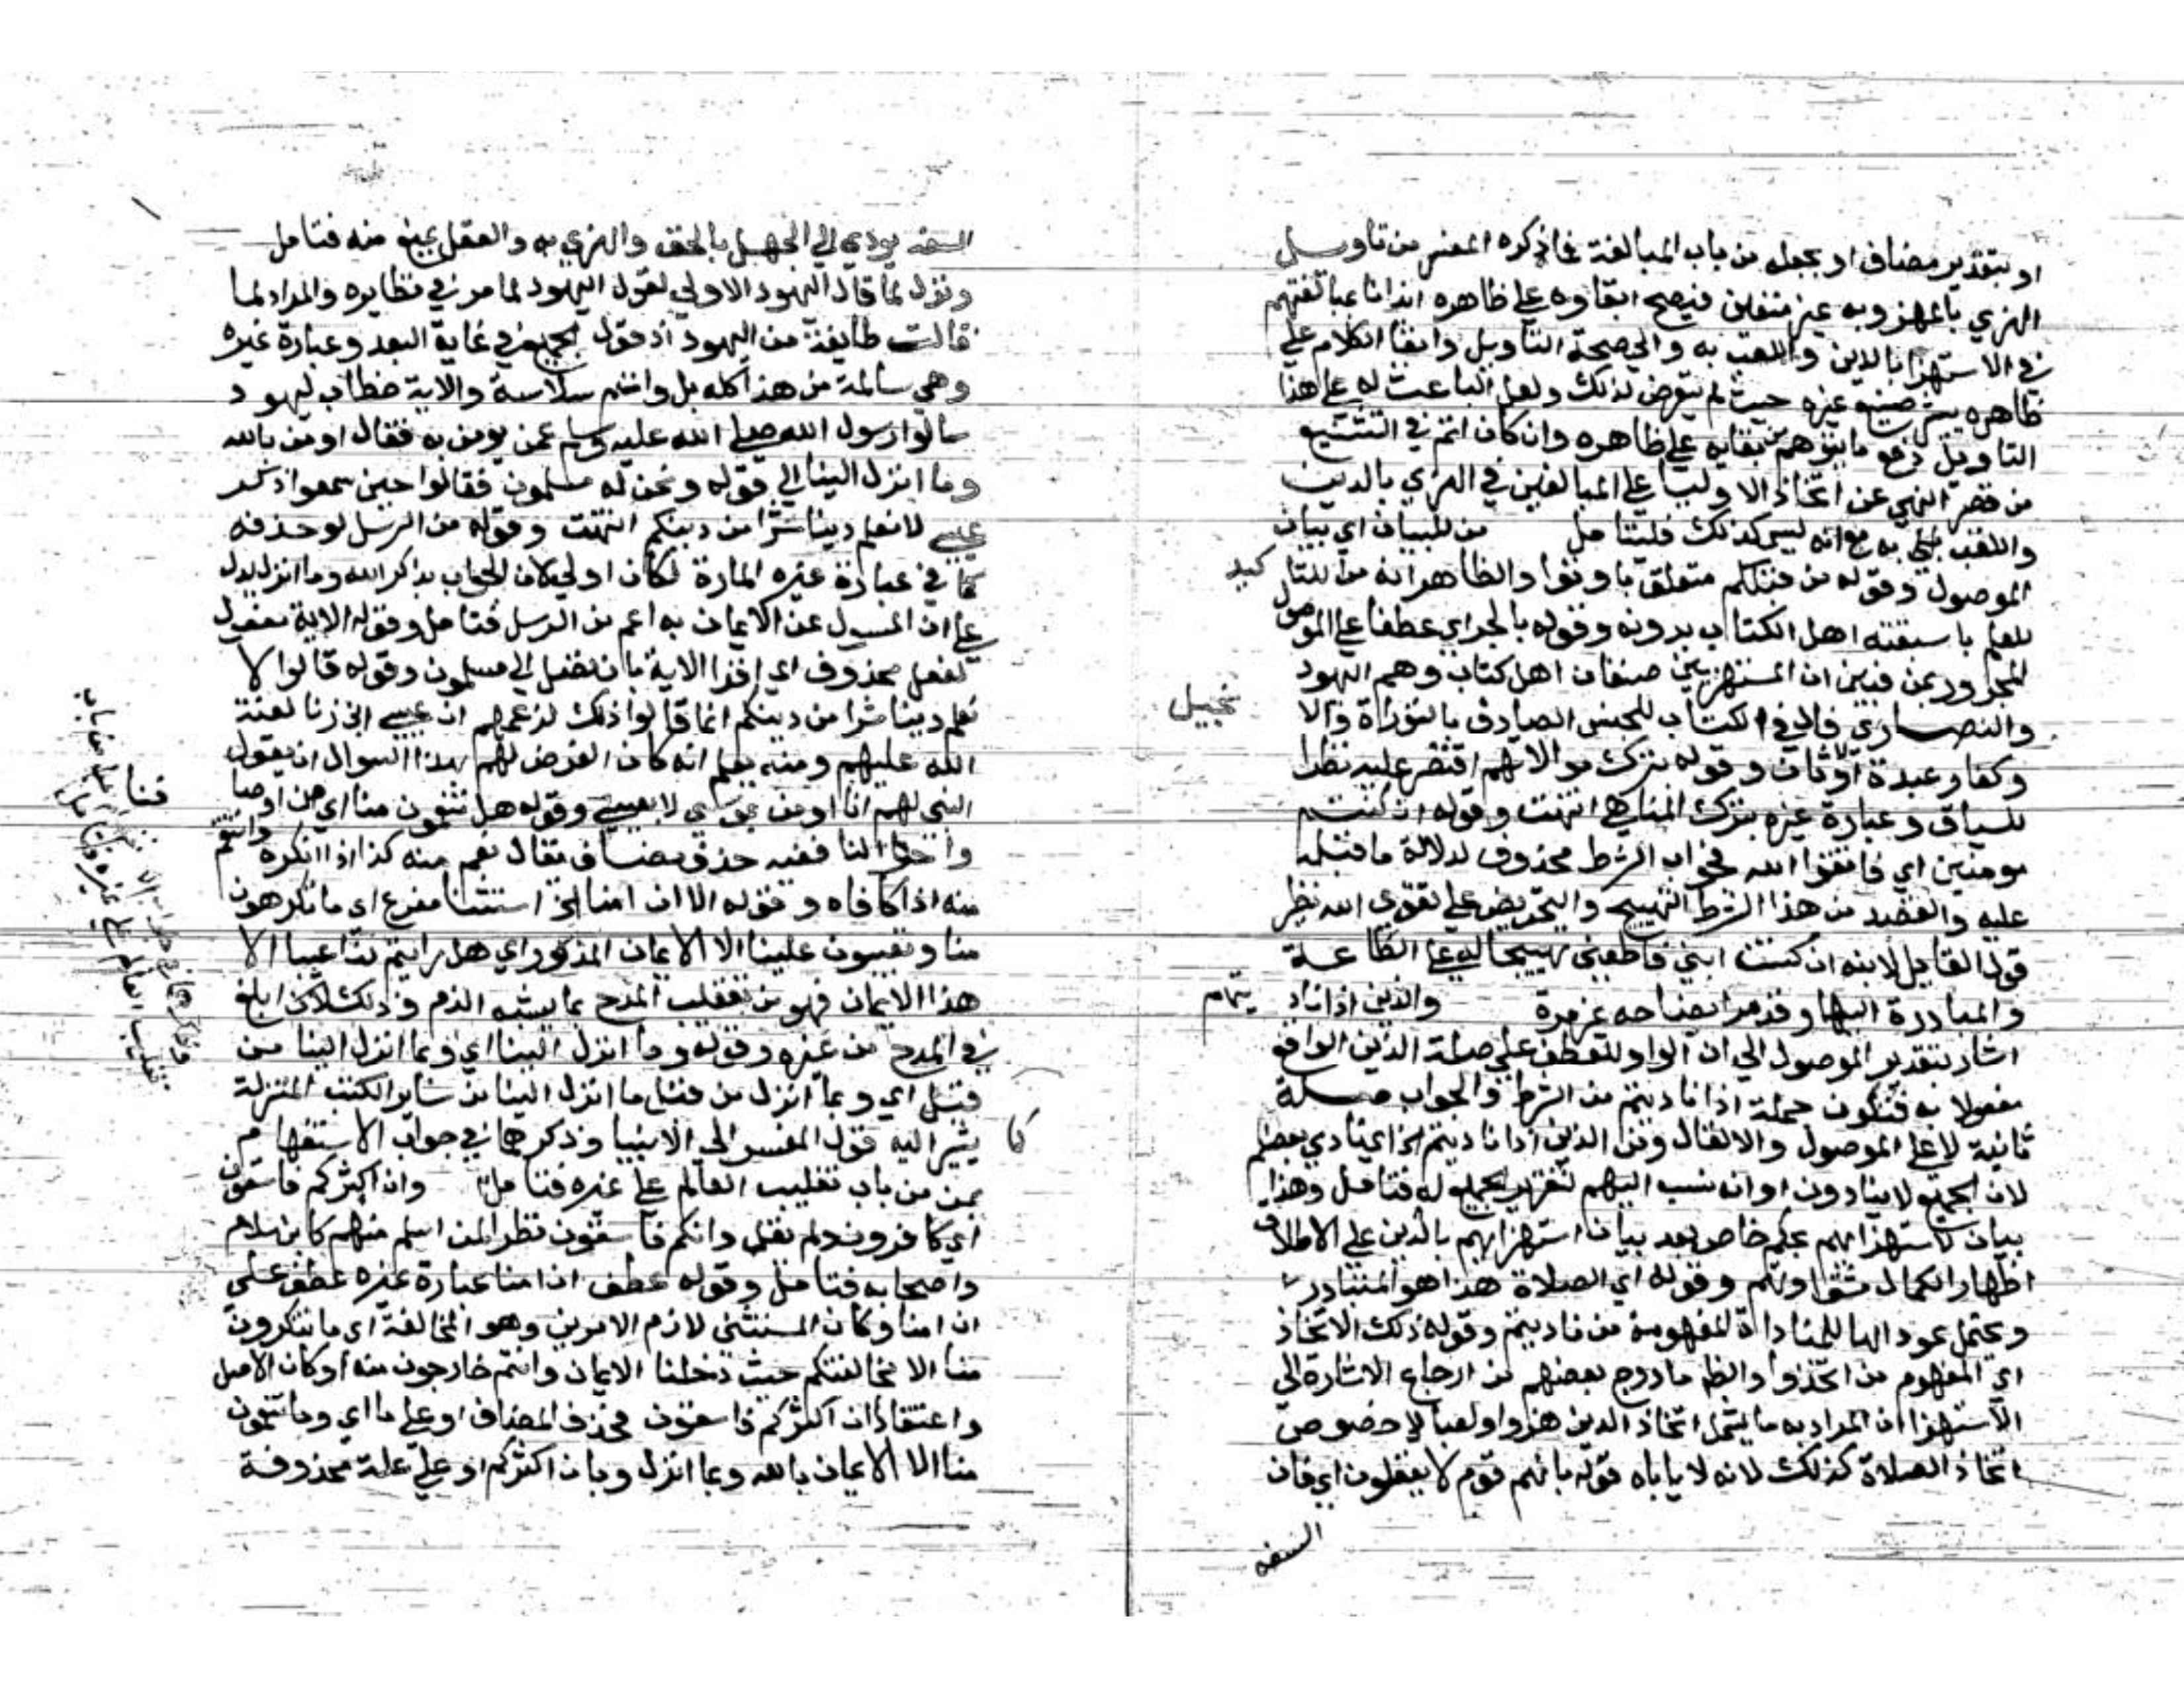 او بتقدير مضاف او بجعله من باب المبالغة فما ذكره المفسر من تاويل
الهزي بالمهزو به غير متعين فيصح ابقاوه على ظاهره ايذانا بمبالغتهم
في الاستهزا بالدين واللعب به والي صحة التاويل وابقا الكلام على
ظاهره يشير صنيع غيره حيث لم يتعرض لذلك ولعل الباعث له على هذا
التاويل دفع ما يتوهم من بقايه على ظاهره وان كان اتم في التشنيع
من قصر النهي عن اتخاذ الاوليا على المبالغين في الهزي بالدين
واللعب به مع انه ليس كذلك فليتامل من للبيان اي بيان
الموصول وقوله من قبلكم متعلق باوتوا والظاهر انه من للتاكيد
للعلم باسبقته اهل الكتاب بدونه وقوله بالجر اي عطفا على الموصول
المجرور بمن فبين ان المستهزيين صنفان اهل كتاب وهم اليهود
والنصارى فال في الكتاب للجنس الصادق بالتوراة والانجيل
وكفار عبدة اوثان وقوله بترك موالاتهم اقتصر عليه نظرا
للسياق وعبارة غيره بترك المناهي انتهت وقوله ان كنتم
مومنين اي فاتقوا الله فجواب الشرط محذوف لدلالة ما قبله
عليه والقصد من هذا الشرط التهييج والتحريض على تقوى الله نظير
قول القايل لابنه ان كنت ابني فاطعني تهييجا له على الطاعة
والمبادرة اليها وقد مر ايضاحه غير مرة والذين اذا ناديتم
اشار بتقدير الموصول الى ان الواو للعطف على صلة الذين الواقع
مفعولا به فتكون جملة اذا ناديتم من الشرط والجواب صلة
ثانية لا على الموصول والالقال ومن الذين اذا ناديتم الخ اي نادي بعضكم
لان الجميع لا ينادون او انه نسب اليهم لتقرير الجميع له فتامل وهذا
بيان لاستهزايهم بحكم خاص بعد بيان استهزايهم بالدين على الاطلاق
اظهارا لكمال شقاوتهم وقوله اي الصلاة هذا هو المتبادر
ويحتمل عود الها للمناداة المفهومة من ناديتم وقوله ذلك الاتخاذ
اي المفهوم من اتخذوا والظ ما درج بعضهم من ارجاع الاشارة الى
الاستهزا ان المراد به ما يشمل اتخاذ الدين هزوا ولعبا لا خصوص
اتخاذ الصلاة كذلك لانه لا ياباه قوله بانهم قوم لا يعقلون اي فان
السفه
السفه يودي الي الجهل بالحق والهزي به والعقل يمنع منه فتامل
ونزل لما قال اليهود الاولي لقول اليهود لما مر في نظايره والمراد لما
قالت طايفة من اليهود اذ قول الجميع في غاية البعد وعبارة غيره
وهي سالمة من هذا كله بل واتم سلاسة والاية خطاب ليهود
سالوا رسول الله صلى الله عليه وسلم عمن يومن به فقال اومن بالله
وما انزل الينا الي قوله ونحن له مسلمون فقالوا حين سمعوا ذكر
عيسى لا نعلم دينا شرا من دينكم انتهت وقوله من الرسل لو حذفه
كما في عبارة غيره المارة لكان اولي لان الجواب بذكر الله وما انزل يدل
على ان المسول عن الايمان به اعم من الرسل فتامل وقوله الاية مفعول
لفعل محذوف اي اقرا الاية بان تصل الي مسلمون وقوله قالوا لا
نعلم دينا شرا من دينكم انما قالوا ذلك لزعمهم ان عيسى ابن زنا لعنة
الله عليهم ومنه يعلم انه كان الغرض لهم بهذا السوال ان يقول
النبي لهم انا اومن بموسى لا بعيسى وقوله هل تنقمون منا اي من اوصافنا
واحوالنا ففيه حذف مضاف يقال نقم منه كذا اذا انكره وانتقم
منه اذا كافاه وقوله الا ان امنا الخ استثنا مفرغ اي ما تكرهون
منا وتعيبون علينا الا الايمان المذكور اي هل رايتم بنا عيبا الا
هذا الايمان فهو من تعقيب المدح بما يشبه الذم وذلك لانه ابلغ
في المدح من غيره وقوله وما انزل الينا اي وبما انزل الينا من
قبل اي وبما انزل من قبل ما انزل الينا من ساير الكتب المنزلة
كما يشير اليه قول المفسر الى الانبيا وذكر هنا في جواب الاستفهام
بمن من باب تغليب العالم على غيره فتامل وان اكثركم فاسقون
اي كافرون ولم يقل وانكم فاسقون نظرا لمن اسلم منهم كابن سلام
واصحابه فتامل وقوله عطف ان امنا عبارة غيره عطف على
ان امنا وكان المستثنى لازم الامرين وهو المخالفة اي ما تنكرون
منا الا مخالفتكم حيث دخلنا الايمان وانتم خارجون منه او كان الاصل
واعتقاد ان اكثركم فاسقون فحذف المضاف او على ما اي وما تنقمون
منا الا الايمان بالله وبما انزل وبان اكثركم او على علة محذوفة
تغليب العالم على غيره